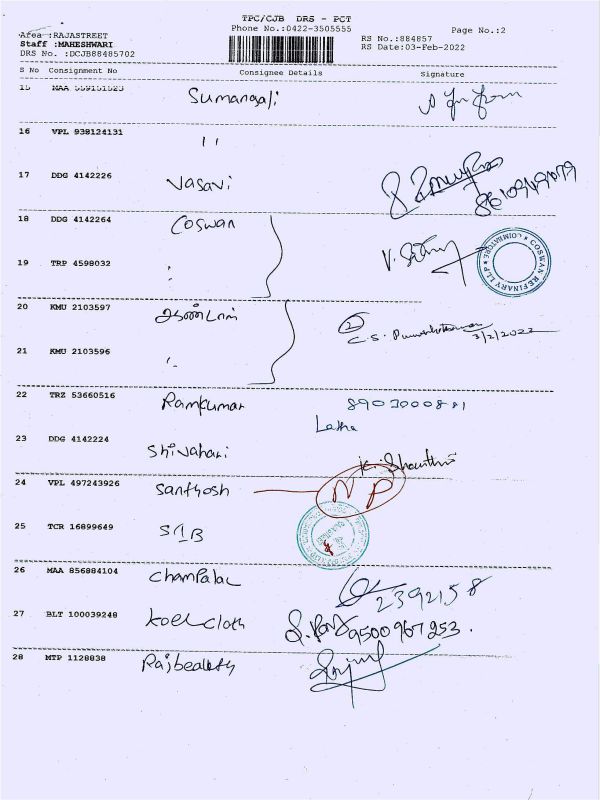 TPC/CJB DRS - PCT
Phone No.:0422-3505555
Page No.:2
Area :RAJASTREET
Staff :MAHESHWARI
DRS No. :DCJB88485702
RS No.:884857
RS Date:03-Feb-2022
S No Consignment No Consignee Details Signature
15 MAA 559151523 Sumangali
16 VPL 938124131 ''
17 DDG 4142226 Vasavi
18 DDG 4142264 Coswan
COSWAN REFINARY LLP ★ COIMBATORE ★
19 TRP 4598032
20 KMU 2103597
3/2/2022
21 KMU 2103596
22 TRZ 53660516 Ramkumar
Latha
23 DDG 4142224 Shivahari
24 VPL 497243926 Santhosh NP
25 TCR 16899649 SIB
26 MAA 856884104 Champalal 2392158
27 BLT 100039248 Koel cloth 9500967253.
28 MTP 1128838